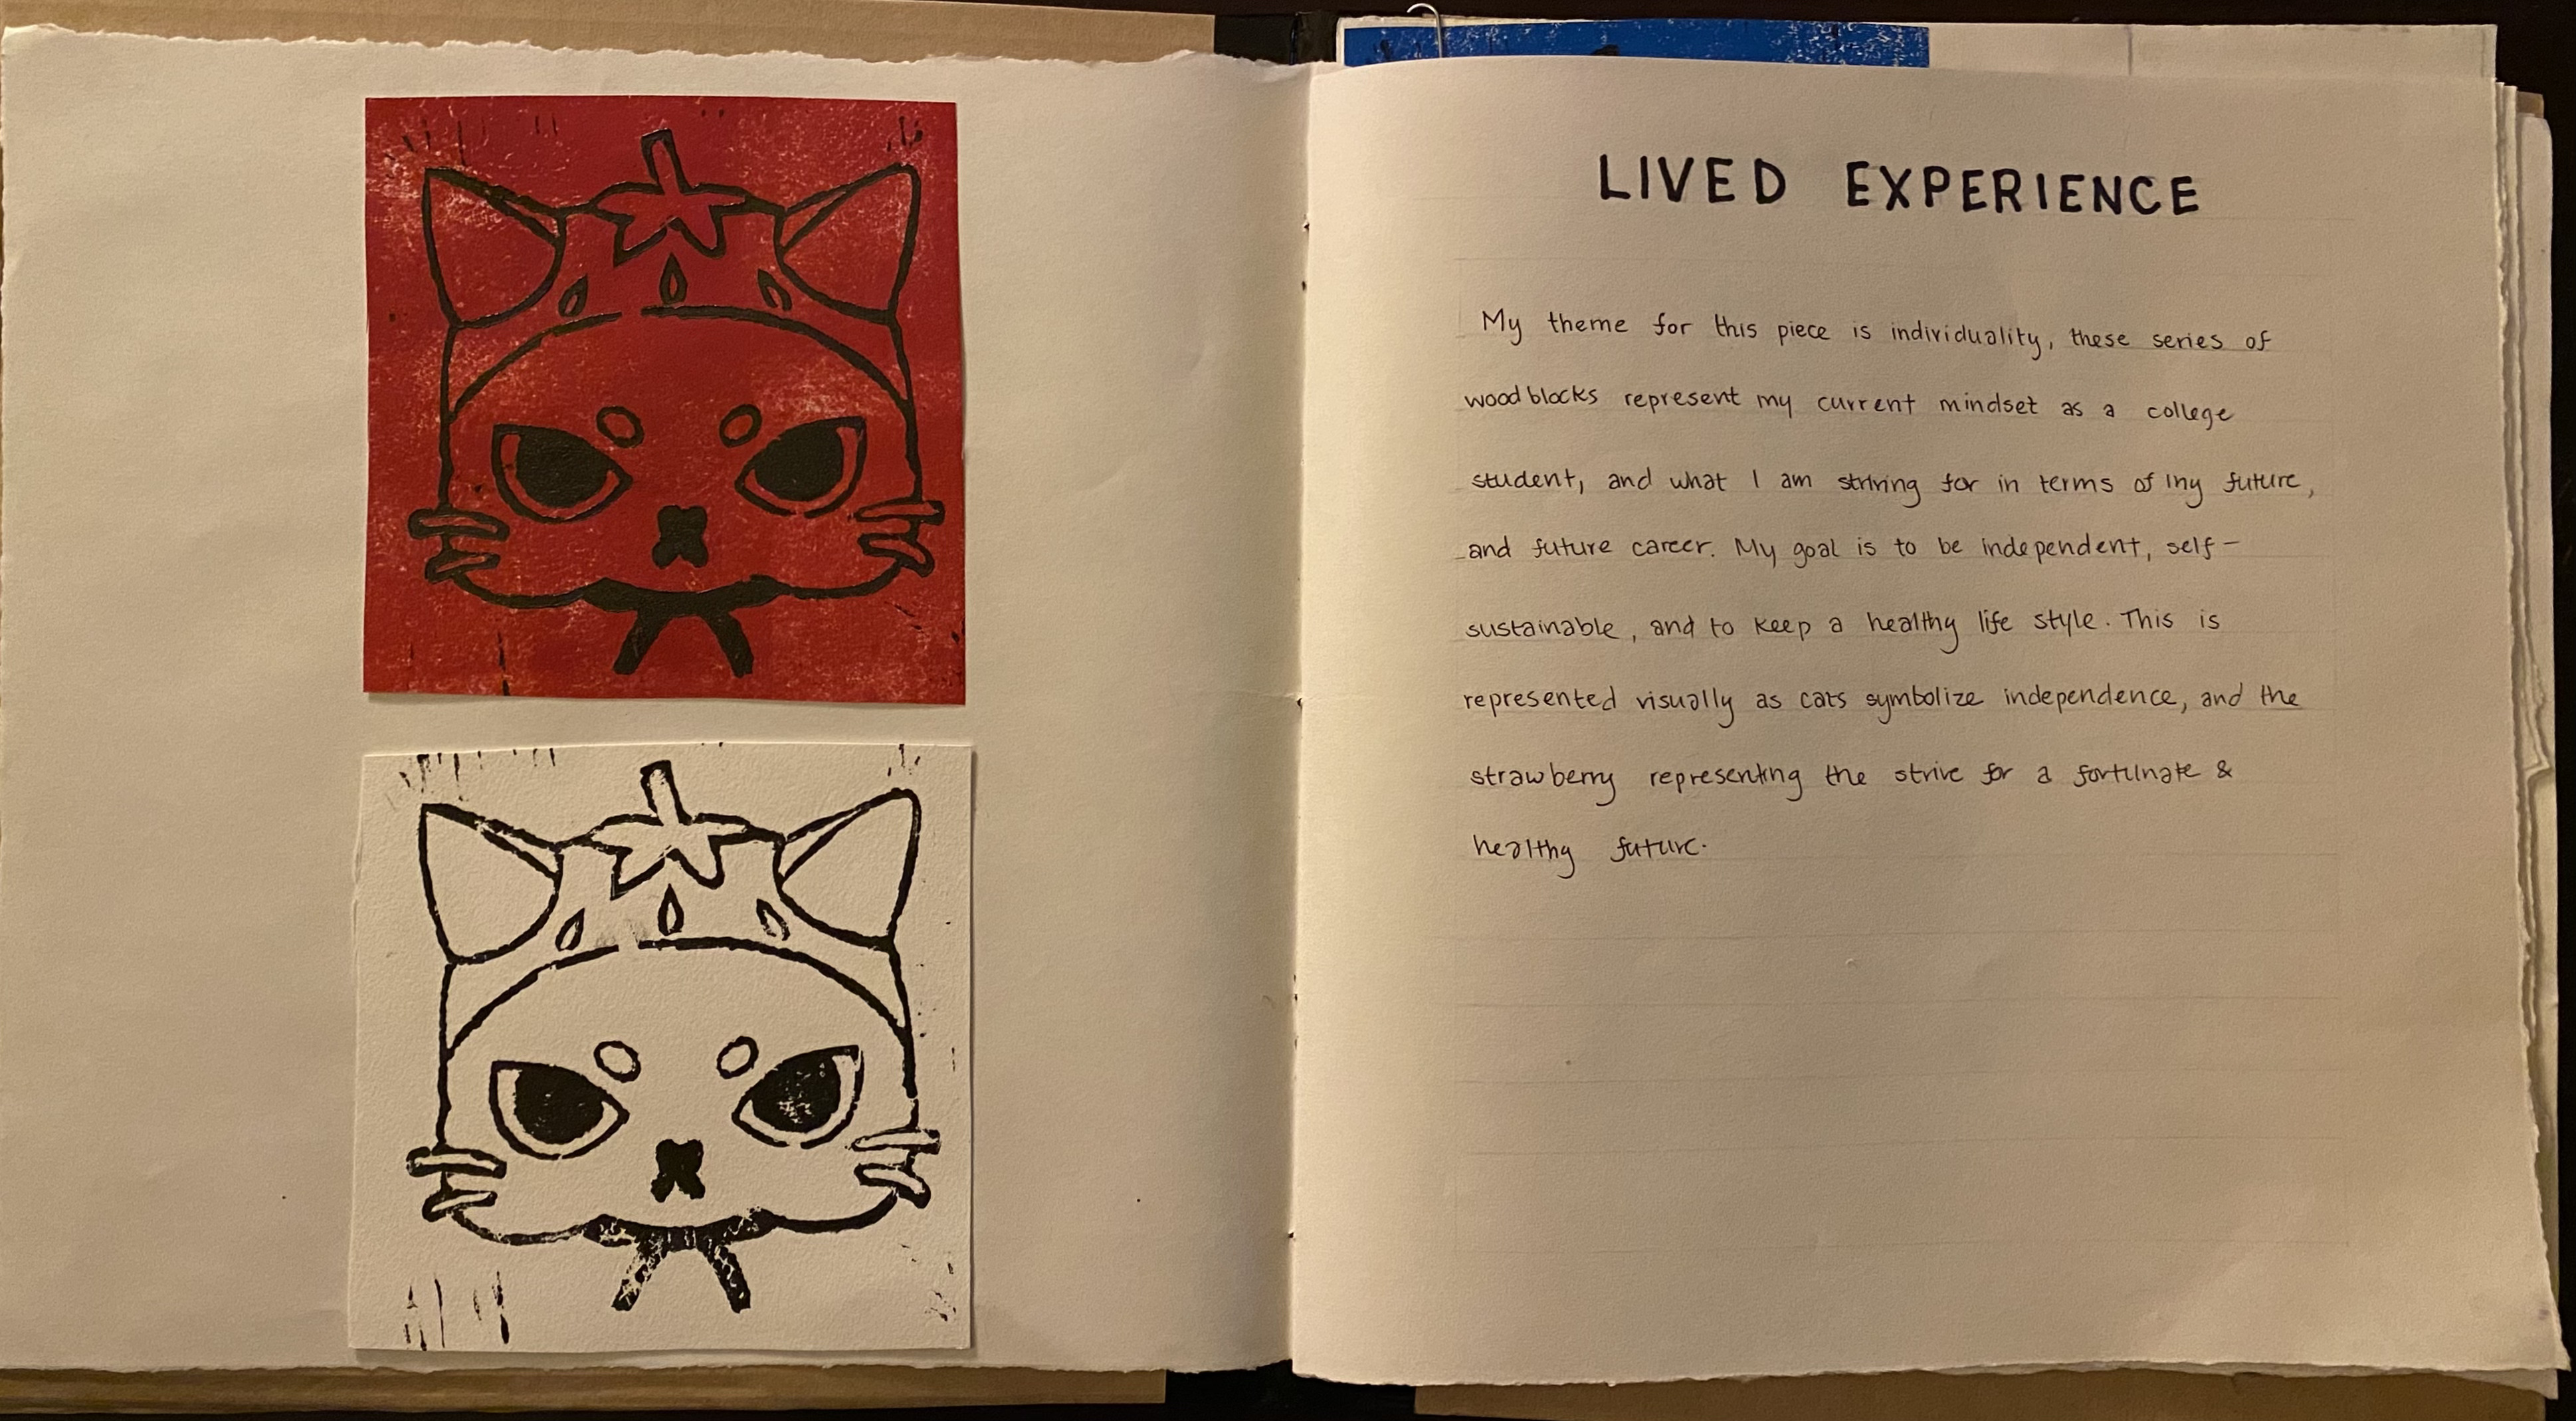 LIVED EXPERIENCE
My theme for this piece is individuality, these series of
woodblocks represent my current mindset as a college
student, and what I am striving for in terms of my future,
and future career. My goal is to be independent, self-
sustainable, and to keep a healthy life style. This is
represented visually as cats symbolize independence, and the
strawberry representing the strive for a fortunate &
healthy future.